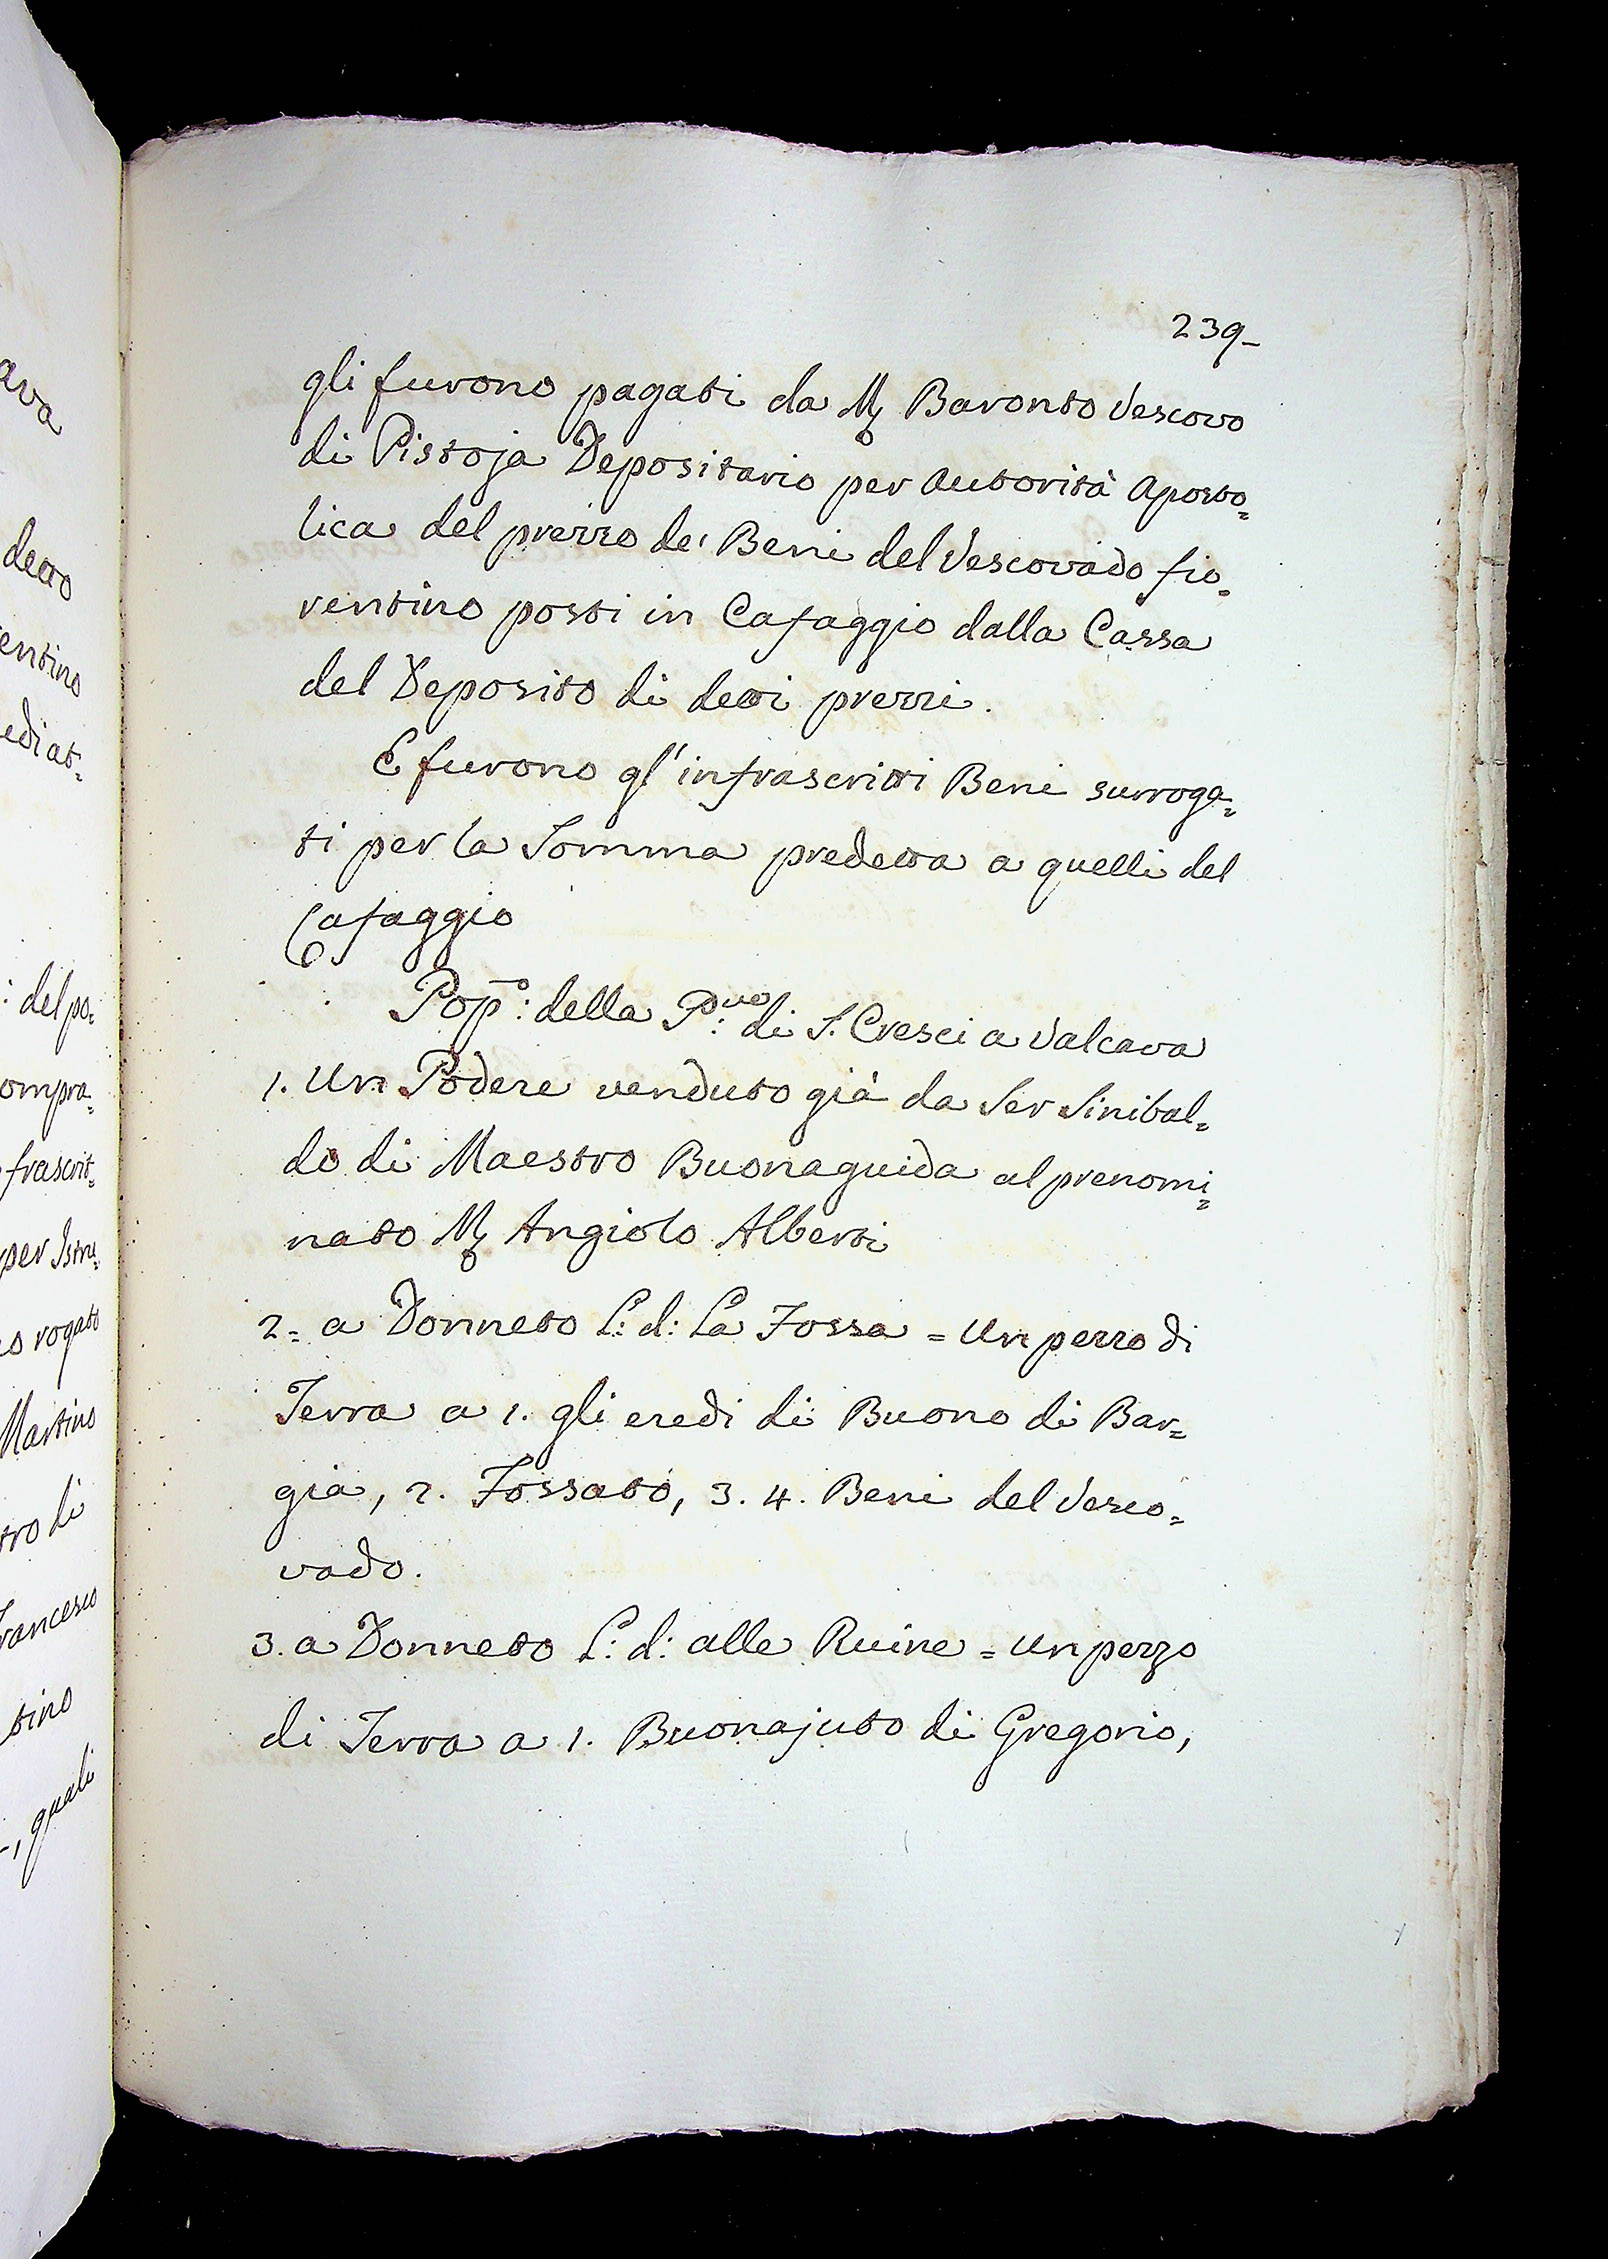 239-
gli furono pagati da Mg Baronto Vescovo
di Pistoja Depositario per Autorità Aposto=
lica del prezzo de' Beni del Vescovado fio=
rentino posti in Cafaggio dalla Cassa
del Deposito di detti prezzi.
E furono gl'infrascritti Beni surroga=
ti per la Somma predetta a quelli del
Cafaggio
Popo: della P:ve di S. Cresci a Valcava
1. Un Podere venduto già da Ser Sinibal=
do di Maestro Buonaguida al prenomi=
nato Mg Angiolo Alberti
2= a Donneto L: d: La Fossa = Un pezzo di
Terra a 1. gli eredi di Buono di Bar=
gia, 2. Fossato, 3. 4. Beni del Vesco=
vado.
3. a Donneto L: d: alle Ruine = Un pezzo
di Terra a 1. Buonajuto di Gregorio,
detto
entino
ediat=
: del po=
ompra=
frascrit=
per Istru=
o rogato
Martino
tro di
rancesco
tino
, quali